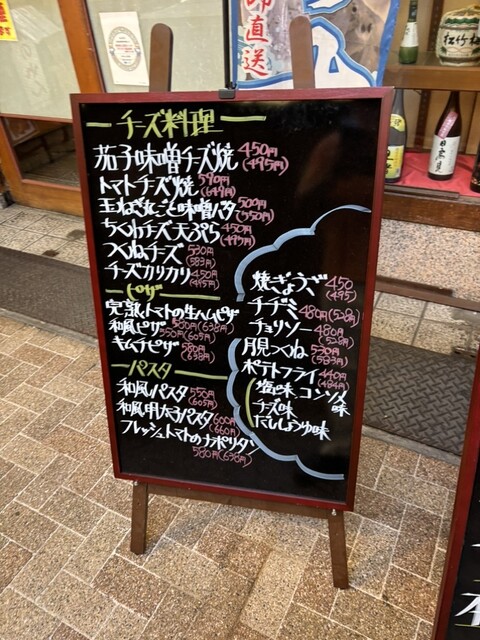 直送
松竹梅
チーズ料理
茄子味噌チーズ焼 450円 (495円)
トマトチーズ焼 590円 (649円)
玉ねぎ丸ごと味噌バター 500円 (550円)
ちくわチーズ天ぷら 450円 (495円)
つくねチーズ 530円 (583円)
チーズカリカリ 450円 (495円)
ピザ
完熟トマトの生ハムピザ 580円 (638円)
和風ピザ 550円 (605円)
キムチピザ 580円 (638円)
パスタ
和風パスタ 550円 (605円)
和風明太子パスタ 600円 (660円)
フレッシュトマトのナポリタン
580円 (638円)
焼ぎょうざ 450 (495)
チヂミ 480円 (528円)
チョリソー 480円 (528円)
月見つくね 530円 (583円)
ポテトフライ 440円 (484円)
塩味、コンソメ味
チーズ味
だししょうゆ味